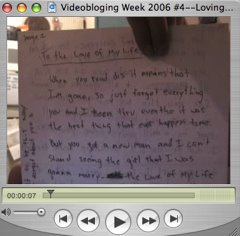 Videobloging Week 2006 #4--Loving...
page 1
To the Love of My Life
When you read dis it means that
I'm gone, so just forget everything
you and I been thru even tho it was
the best thing that ever happens to me.
But you got a new man and I can't
stand seeing the girl that I was
gonna marry the Love of My Life
00:00:07